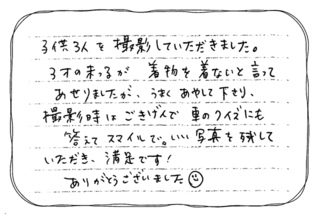 子供3人を撮影していただきました。
3才の末っ子が 着物を着ないと言って
あせりましたが、うまくあやして下さり、
撮影時はごきげんで 車のクイズにも
答えてスマイルで。いい写真を残して
いただき、満足です!
ありがとうございました